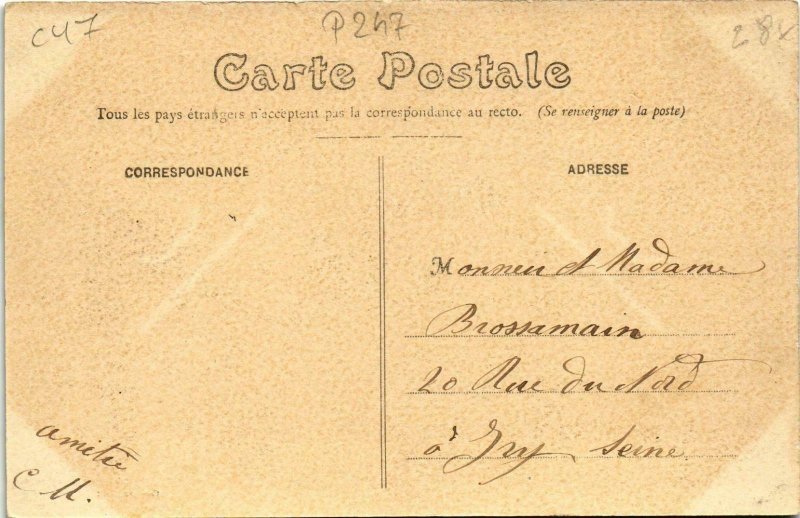 C47
P247
28x
Carte Postale
Tous les pays étrangers n'acceptent pas la correspondance au recto. (Se renseigner à la poste)
CORRESPONDANCE
ADRESSE
Monsieu et Madame
Brossamain
20 Rue du Nord
à Ivry Seine
amitié
C M.